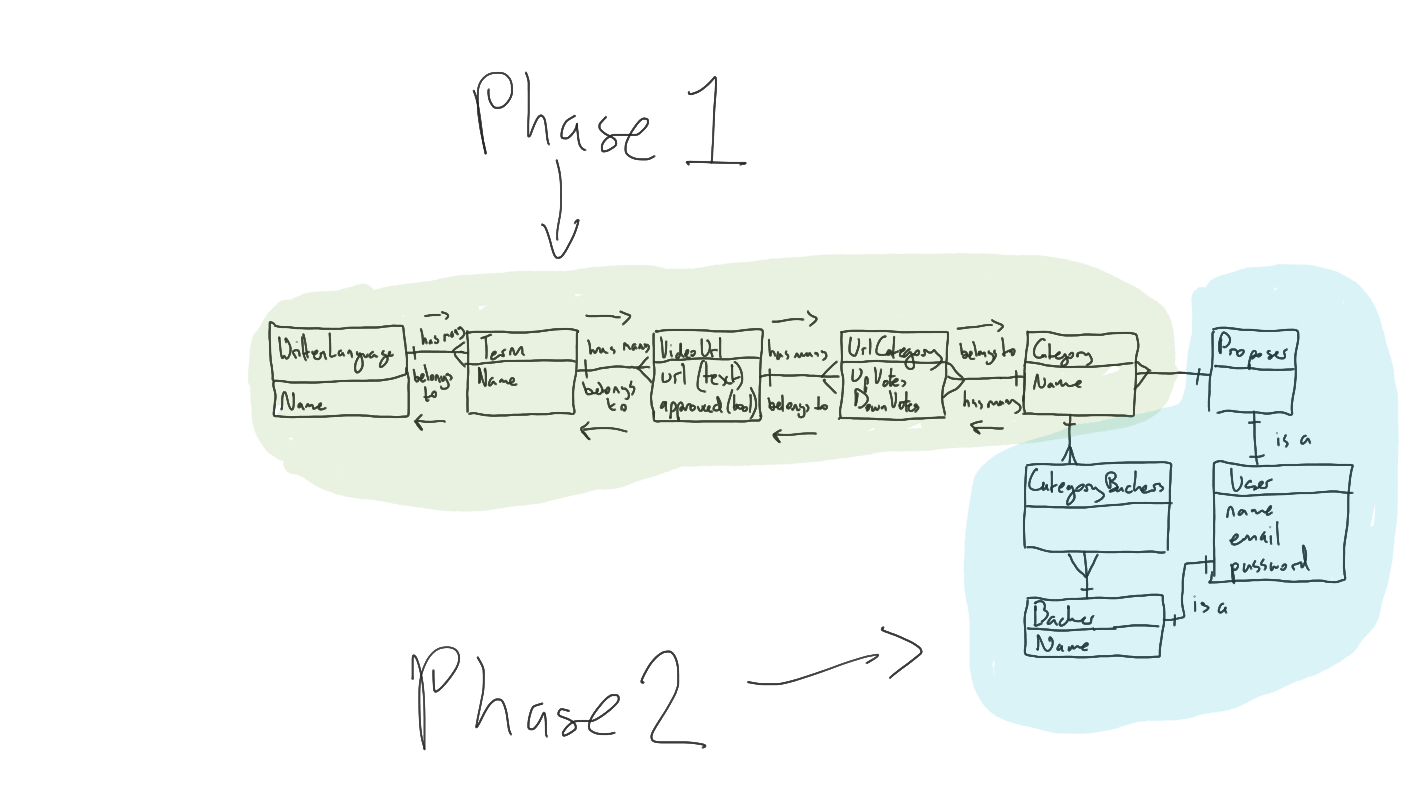 Phase 1
WrittenLanguage
Name
has many
belongs
to
Term
Name
has many
belongs
to
VideoUrl
url (text)
approved (bool)
has many
belongs to
UrlCategory
UpVotes
DownVotes
belongs to
has many
Category
Name
Proposer
is a
CategoryBackers
User
name
email
password
Backer
Name
is a
Phase 2